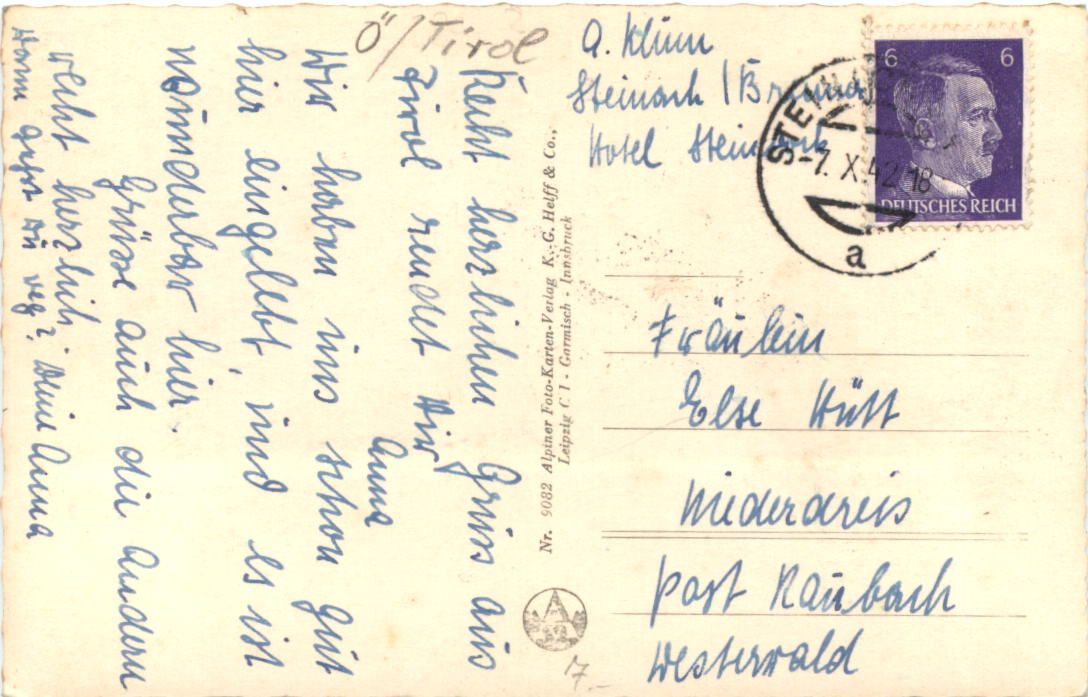 Ö/Tirol
Recht herzlichen Gruss aus
Tirol sendet Dir
Anna
Wir haben uns schon gut
hier eingelebt, und es ist
wunderbar hier.
Grüsse auch die Andern
recht herzlich, Deine Anna
Wann gehst du weg?
A. Klum
Steinach / Brenner
Hotel Steinbock
STEINACH
-7.X.42.18
a
6 6
DEUTSCHES REICH
Nr. 9082 Alpiner Foto-Karten-Verlag K. G. Helff & Co.,
Leipzig C 1 - Garmisch - Innsbruck
Fräulein
Else Hütt
Niederdreis
Post Raubach
Westerwald
17.-